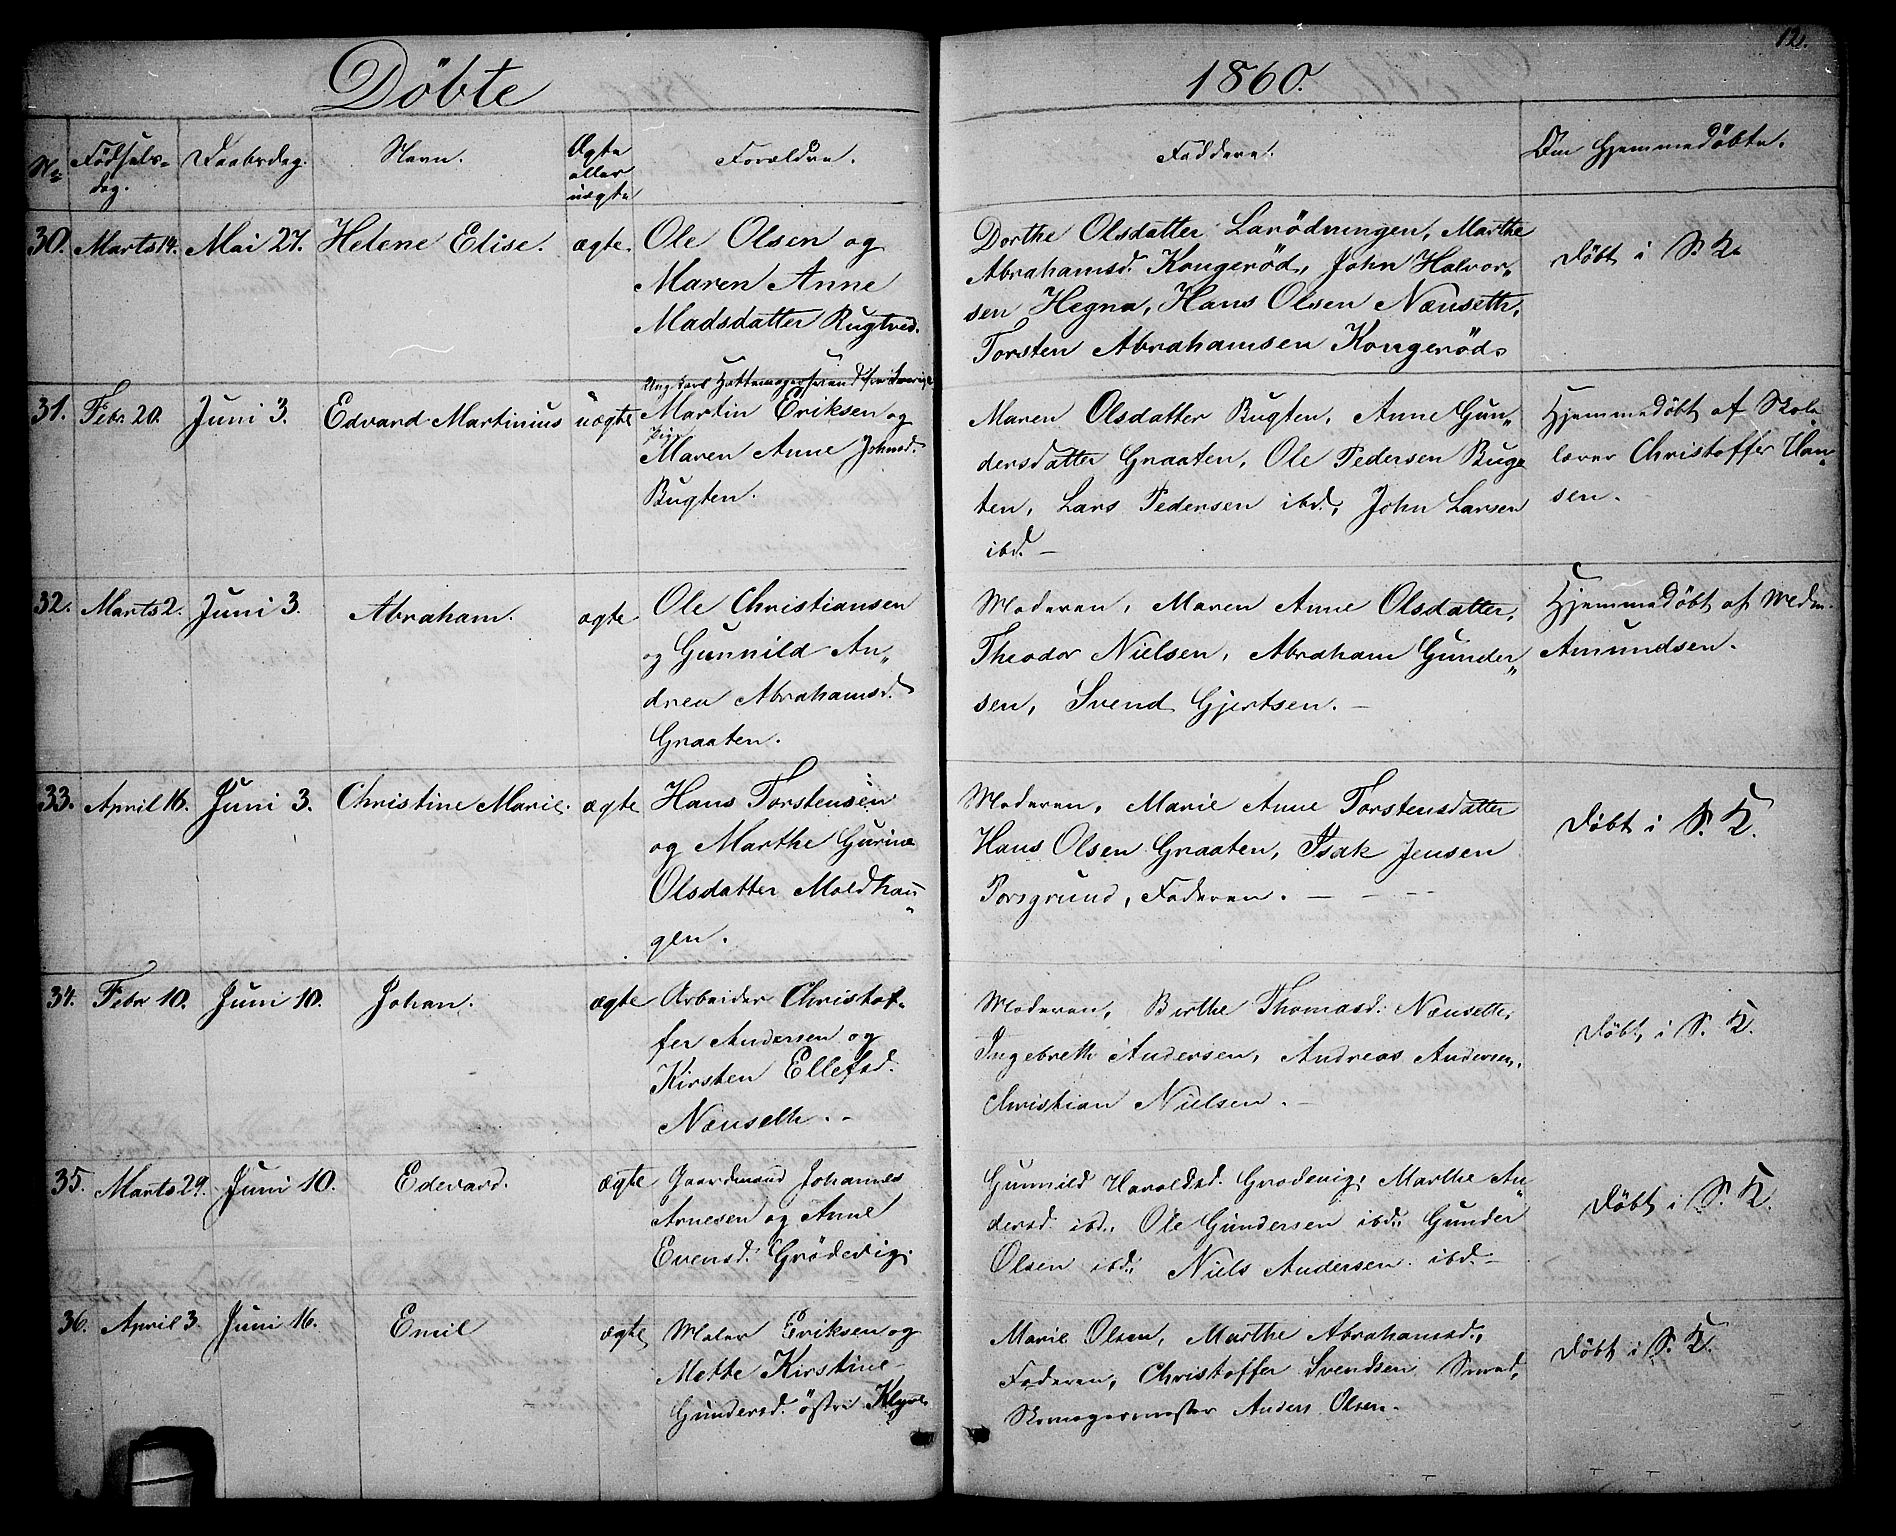 Döbte
1860.
12.
No Födsels-dag. Daabsdag. Navn. Ægte eller uægte Forældre. Faddere. Om Hjemmedöbte.
30. Marts 14. Mai 27. Helene Elise. ægte.
Ole Olsen og
Maren Anne
Madsdatter Rugtved.
Dorthe Olsdatter Larödningen, Marthe
Abrahamsd. Kongeröd, John Halvor-
sen Hegna, Hans Olsen Nænseth,
Torsten Abrahamsen Kongeröd.
Döbt i S. K.
31. Febr. 20. Juni 3. Edvard Martinius uægte
Ungkarl Hattemagersvend fra Sverige
Martin Eriksen og
Pige
Maren Anne Johnsd.
Bugten.
Maren Olsdatter Bugten, Anne Gun„
dersdatter Graaten, Ole Pedersen Bug-
ten, Lars Pedersen ibd., John Larsen
ibd. –
Hjemmedöbt af Skole
lærer Christoffer Han„
sen.
32. Marts 2. Juni 3. Abraham. ægte
Ole Christiansen
og Gunnild An„
drea Abrahamsd.
Graaten.
Moderen, Maren Anne Olsdatter,
Theodor Nielsen, Abraham Gunder„
sen, Svend Gjertsen. –
Hjemmedöbt af
Amundsen.
33. April 16. Juni 3. Christine Marie. ægte
Hans Torstensen
og Marthe Gurine
Olsdatter Moldhau„
gen.
Moderen, Marie Anne Torstensdatter
Hans Olsen Graaten, Isak Jensen
Porsgrund, Faderen. – – – –
Döbt i S. K.
34. Febr 10. Juni 10. Johan. ægte
Arbeider Christof-
fer Andersen og
Kirsten Ellefsd.
Nænseth. –
Moderen, Birthe Thomasd. Nænseth,
Ingebreth Andersen, Andreas Andersen,
Christian Nielsen. –
Döbt i S. K.
35. Marts 29. Juni 10. Edevard. ægte
Gaardmand Johannes
Arnesen og Anne
Evensd. Grödevig.
Gunnild Haroldsd. Grödevig, Marthe An„
dersd. ibd., Ole Gundersen ibd., Gunder
Olsen ibd., Niels Andersen ibd. –
Döbt i S. K.
36. April 3. Juni 16. Emil ægte
Maler Eriksen og
Mette Kirstine
Gundersd. östre Klyve
Marie Olsen, Marthe Abrahamsd.,
Faderen, Christoffer Svendsen Smed,
Skomagermester Anders Olsen.
Döbt i S. K.